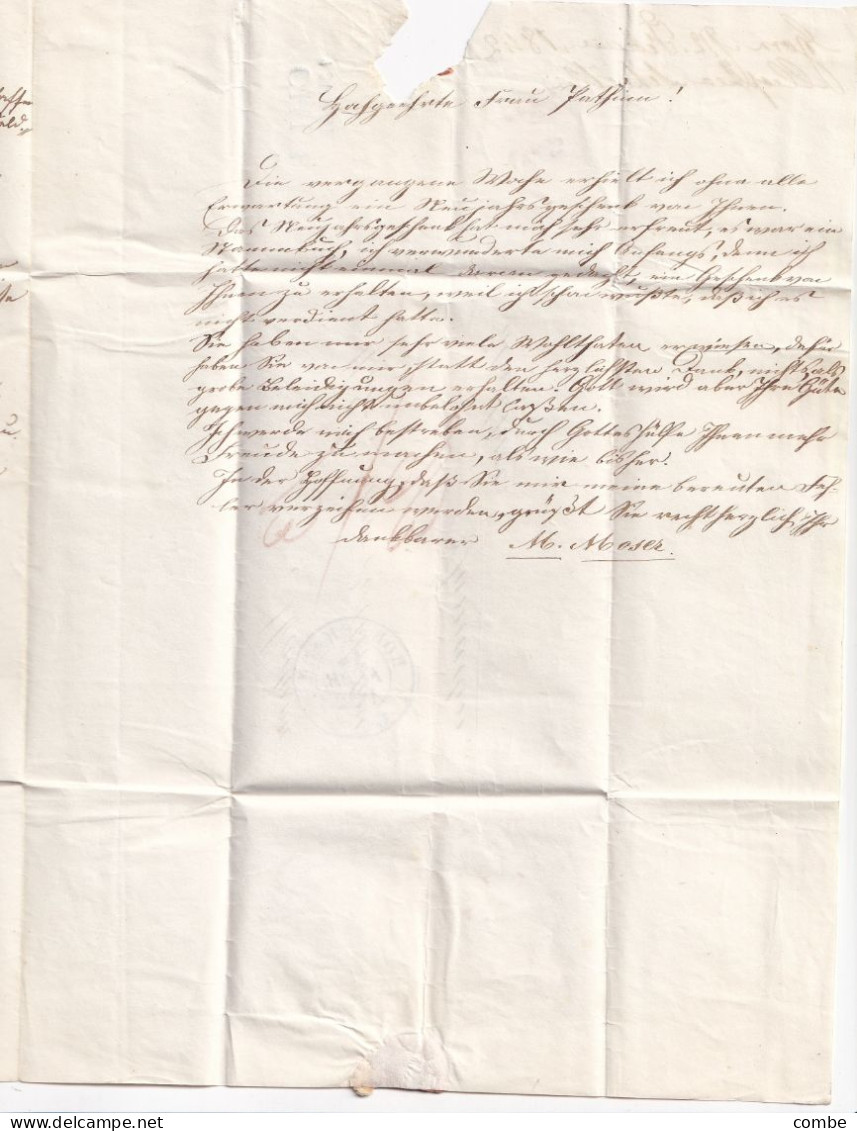 Hochgeehrte Frau Pathin!
Die vergangene Woche erhielt ich ohne alle
Erwartung ein Neujahrsgeschenk von Ihnen.
Das Neujahrsgeschenk hat mich sehr erfreut, es war ein
Stammbuch, ich verwunderte mich Anfangs, denn ich
hatte nicht einmal daran gedacht, ein Geschenk von
Ihnen zu erhalten, weil ich schon wußte, daß ich es
nicht verdient hatte.
Sie haben mir sehr viele Wohlthaten erwiesen, dafür
haben Sie von mir statt den herzlichsten Dank, nichts als
grobe Beleidigungen erhalten. Gott wird aber Ihre Güte
gegen mich nicht unbelohnt laßen.
Ich werde mich bestreben, durch Gotteshülfe Ihnen mehr
Freude zu machen, als wie bisher.
In der Hoffnung, daß Sie mir meine bereuten Feh-
ler verzeihen werden, grüßt Sie recht herzlich, Ihr
dankbarer M. Moser.
www.delcampe.net
combe